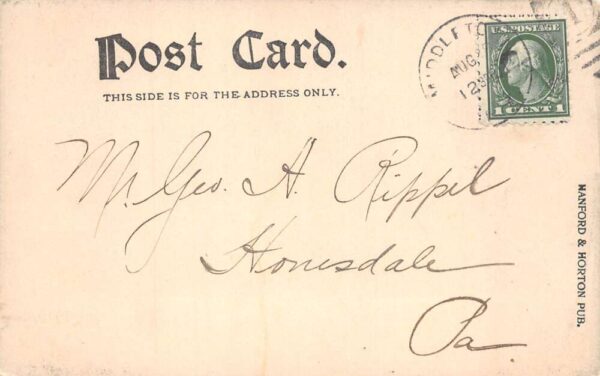 Post Card.
THIS SIDE IS FOR THE ADDRESS ONLY.
AUG
12
U.S. POSTAGE
1 CENT 1
Mr. Geo. A. Rippel
Honesdale
Pa.
MANFORD & HORTON PUB.